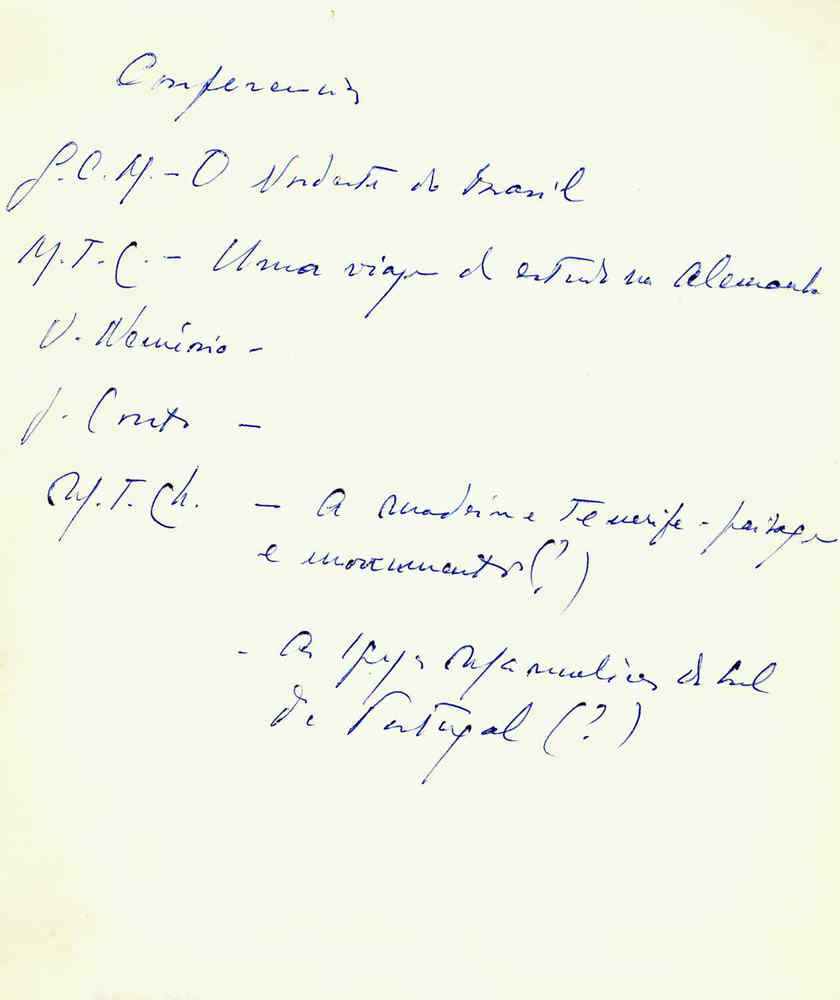 Conferencias
J. C. M. - O Nordeste do Brasil
M. T. C. - Uma viagem de estudo na Alemanha
V. Nemésio -
J. Couto -
M. T. Ch. - A Madeira e Tenerife - paisagem
e monumentos (?)
- As Igrejas do Sul
de Portugal (?)